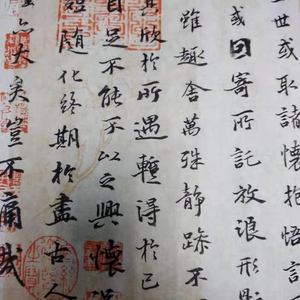 世或取諸懷抱悟言
或因寄所託放浪形
雖趣舍萬殊靜躁不
其欣於所遇蹔得於己
不能不以之興懷
隨化終期於盡古人
亦大矣豈不痛哉